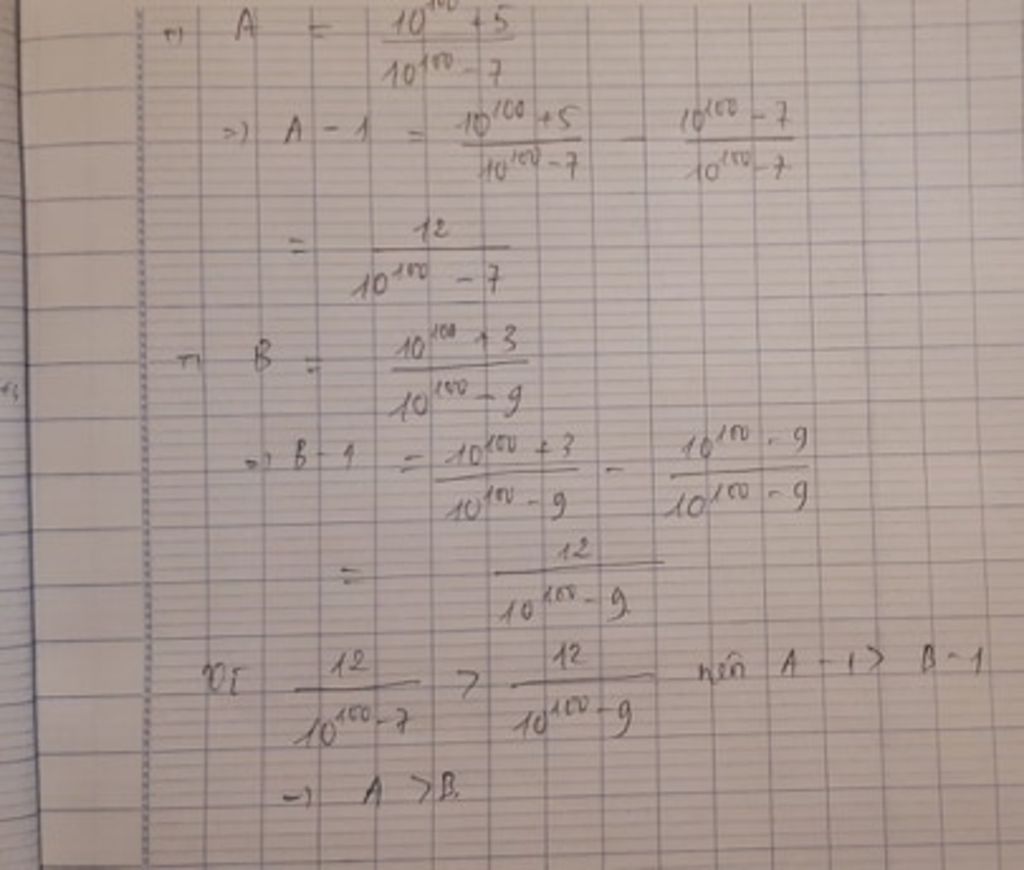 +) A = \frac{10^{100} + 5}{10^{100} - 7}
=) A - 1 = \frac{10^{100} + 5}{10^{100} - 7} - \frac{10^{100} - 7}{10^{100} - 7}
= \frac{12}{10^{100} - 7}
+) B = \frac{10^{100} + 3}{10^{100} - 9}
=) B - 1 = \frac{10^{100} + 3}{10^{100} - 9} - \frac{10^{100} - 9}{10^{100} - 9}
= \frac{12}{10^{100} - 9}
Vì \frac{12}{10^{100} - 7} > \frac{12}{10^{100} - 9} nên A - 1 > B - 1
=) A > B.